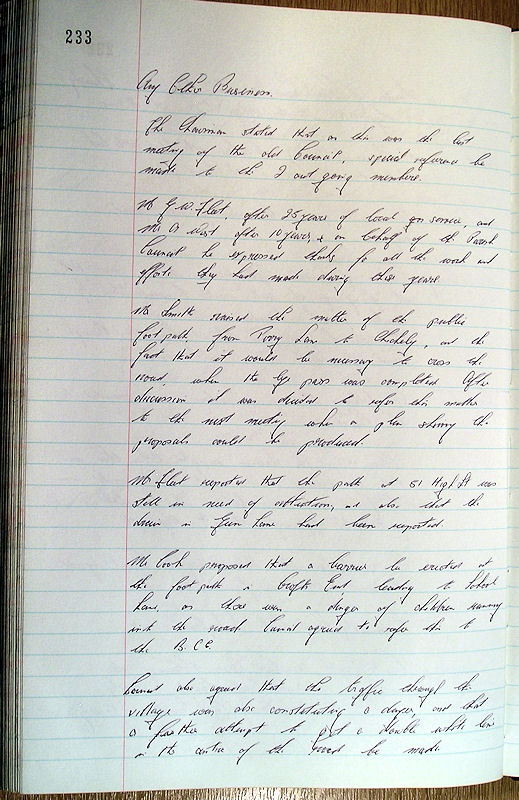 233
Any Other Business.
The Chairman stated that as this was the last
meeting of the old Council, special reference be
made to the 2 out going members.
Mr G. W. Flert, after 25 years of local gov service, and
Mr West after 10 years, & on behalf of the Parish
Council he expressed thanks for all the work and
efforts they had made during these years.
Mr Smith raised the matter of the public
foot path from Lane to Chichely, and the
fact that it would be necessary to cross the
road when the by pass was completed. After
discussion it was decided to refer this matter
to the next meeting when a plan showing the
proposals could be produced.
Mr Flert reported that the path at 51 High St was
still in need of attention, and also that the
drain in Lane had been reported
Mr Cook proposed that a barrier be erected at
the foot path a Crofts End leading to School
Lane, as there was a danger of children running
into the road. Council agreed to refer this to
the B.C.C
Council also agreed that the traffic through the
village was also constituting a danger and that
a further attempt to get a double white line
in the centre of the road be made.